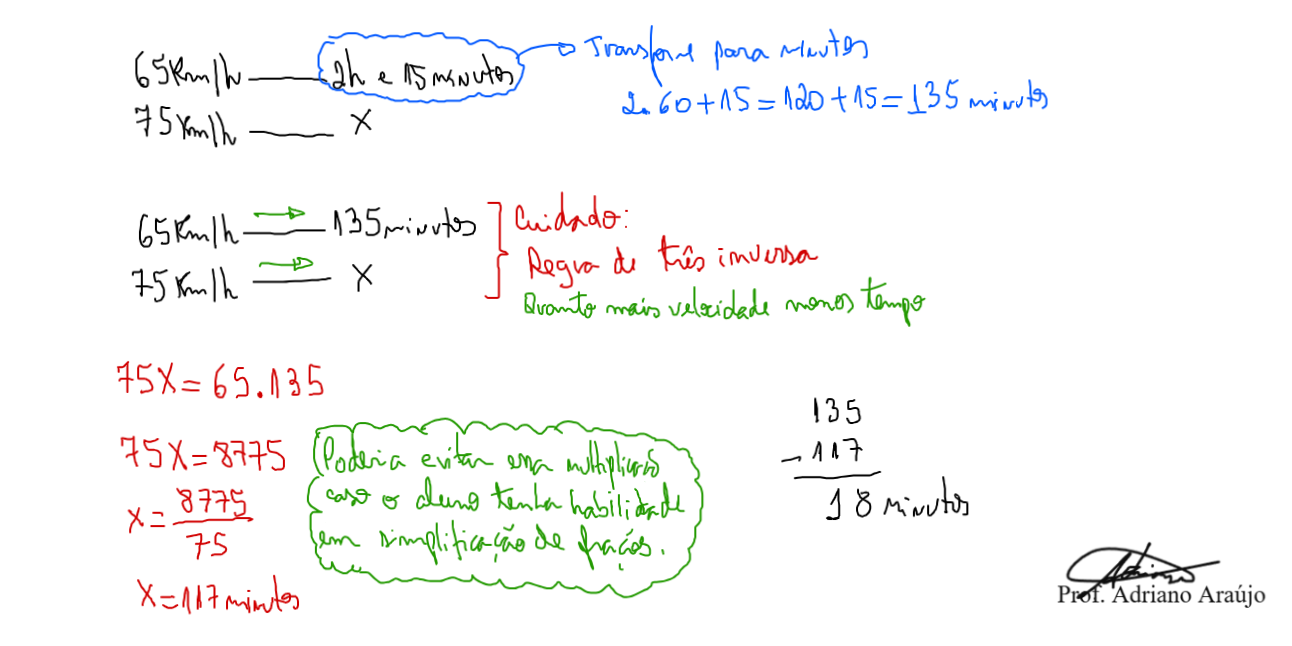 65Km/h — 2h e 15 minutos
Transforme para minutos
2.60+15=120+15=135 minutos
75Km/h — X
65Km/h — 135 minutos
75Km/h — X
Cuidado:
Regra de três inversa
Quanto mais velocidade menos tempo
75X=65.135
75X=8775
X=8775/75
X=117 minutos
Poderia evitar essa multiplicação
caso o aluno tenha habilidade
em simplificação de frações.
135
-117
18 minutos
Prof. Adriano Araújo